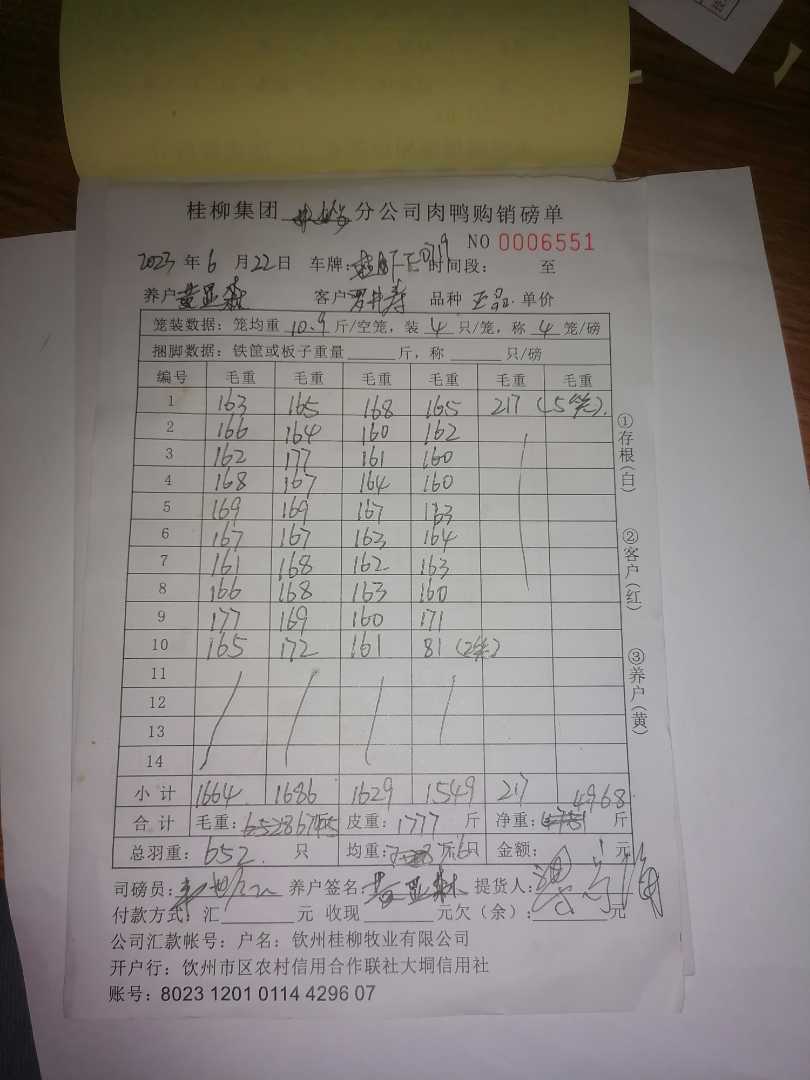 桂柳集团 分公司肉鸭购销磅单
NO 0006551
2023 年 6 月 22 日 车牌: 时间段: 至
养户 黄亚森 客户 罗井寿 品种 王品 单价
笼装数据: 笼均重 10.9 斤/空笼, 装 4 只/笼, 称 4 笼/磅
捆脚数据: 铁筐或板子重量 斤, 称 只/磅
编号 毛重 毛重 毛重 毛重 毛重 毛重
1 163 165 168 165 217 (5笼).
2 166 164 160 162
3 162 177 161 160
4 168 167 164 160
5 169 169 167 163
6 167 167 163 164
7 161 168 162 163
8 166 168 163 160
9 177 169 160 171
10 165 172 161 81 (2笼)
11
12
13
14
小计 1664 1686 1629 1549 217 4968
合计 毛重: 6745 皮重: 1777 斤 净重: 斤
总羽重: 652 只 均重: 斤/只 金额: 元
司磅员: 养户签名: 黄亚森 提货人:
付款方式: 汇 元 收现 元欠(余): 元
公司汇款帐号: 户名: 钦州桂柳牧业有限公司
开户行: 钦州市区农村信用合作联社大垌信用社
账号: 8023 1201 0114 4296 07
①存根(白)
②客户(红)
③养户(黄)